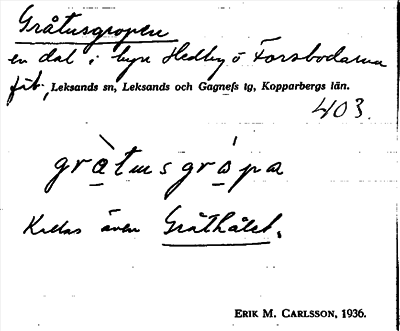 Gråtusgropen
en dal i byn Hedby ö Forsbodarna
fäb, Leksands sn, Leksands och Gagnefs tg, Kopparbergs län.
403.
gràtusgrópa
Kallas även Gråthålet.
ERIK M. CARLSSON, 1936.